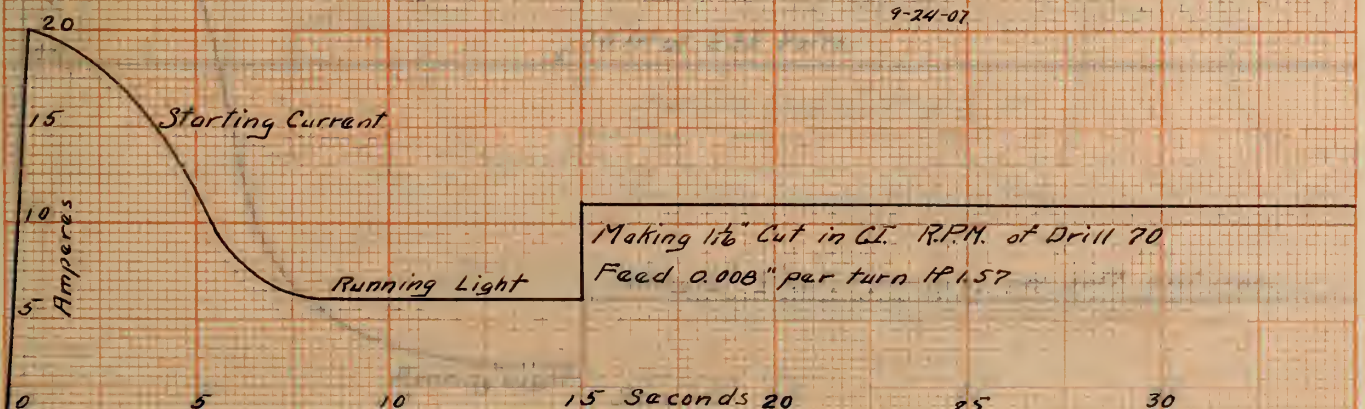 9-24-07
20
15
Starting Current
10
Amperes
Making 1 1/16" Cut in C.I. R.P.M. of Drill 70
Feed 0.008" per turn HP 1.57
Running Light
5
0 5 10 15 Seconds 20 25 30